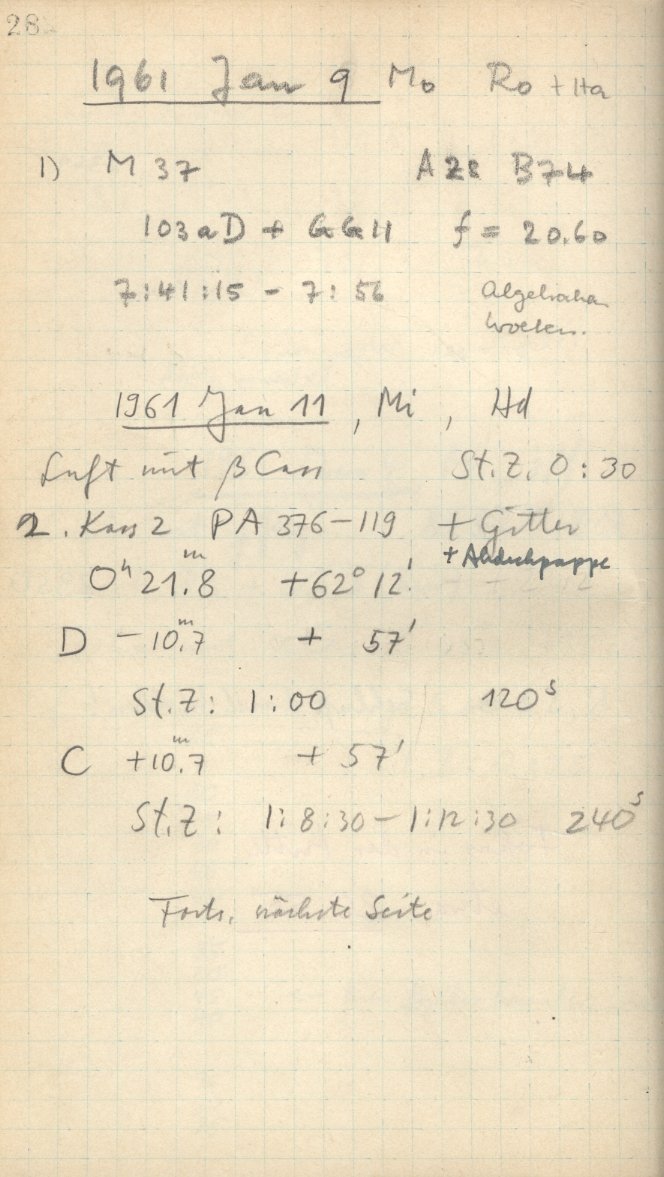 28
1961 Jan 9 Mo Ro + Ha
1) M 37 A 28 B74
103aD + GG11 f = 20.60
7:41:15 - 7:56 abgebrochen
Wolken.
1961 Jan 11, Mi, Hd
Luft mit β Cass St.Z. 0:30
2. Kass 2 PA 376-119 + Gitter
+ Abdeckpappe
0ʰ 21.ᵐ8 +62° 12.'
D -10.ᵐ7 + 57'
St.Z: 1:00 120ˢ
C +10.ᵐ7 + 57'
St.Z: 1:8:30 - 1:12:30 240ˢ
Forts. nächste Seite